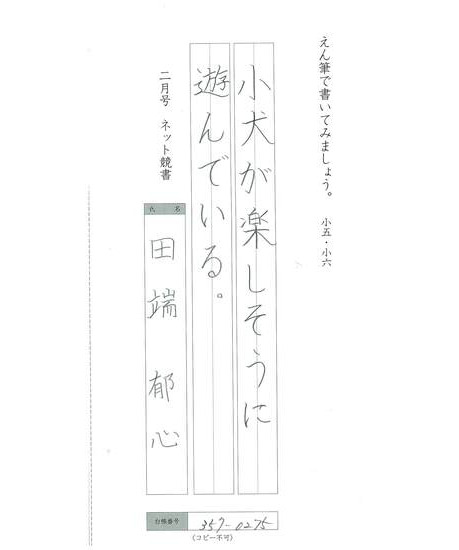 えん筆で書いてみましょう。 小五・小六
小犬が楽しそうに
遊んでいる。
二月号 ネット競書
氏 名
田端 郁心
台帳番号
357-0275
(コピー不可)